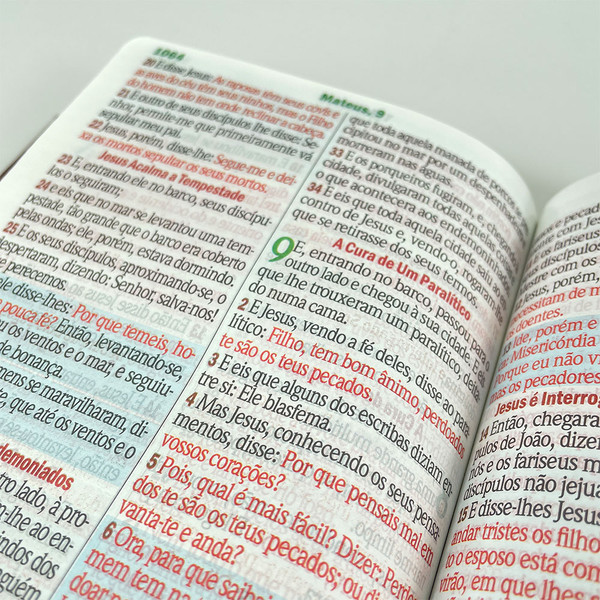 1064
Mateus, 9
20 E disse Jesus: As raposas têm seus covis e
as aves do céu têm seus ninhos, mas o Filho
do homem não tem onde reclinar a cabeça.
21 E outro de seus discípulos lhe disse: Se-
nhor, permite-me que primeiramente vá
sepultar meu pai.
22 Jesus, porém, disse-lhe: Segue-me e dei-
xa os mortos sepultar os seus mortos.
Jesus Acalma a Tempestade
23 E, entrando ele no barco, seus discípu-
los o seguiram;
24 e eis que no mar se levantou uma tem-
pestade, tão grande que o barco era coberto
pelas ondas; ele, porém, estava dormindo.
25 E os seus discípulos, aproximando-se, o
despertaram, dizendo: Senhor, salva-nos!
perecemos.
le disse-lhes: Por que temeis, ho-
pouca fé? Então, levantando-se,
u os ventos e o mar, e seguiu-
de bonança.
mens se maravilharam, di-
te, que até os ventos e o
demoniados
tro lado, à pro-
m-lhe ao en-
indos dos
nguém
que toda aquela manada de porcos
cipitou no mar por um despenhadeiro
morreram nas águas.
33 E os porqueiros fugiram, e, chegando
cidade, divulgaram tudo
o que acontecera aos endemoninhados
34 E eis que toda aquela cidade saiu ao en-
contro de Jesus e, vendo-o, rogaram-lhe
que se retirasse dos seus termos.
A Cura de Um Paralítico
9 E, entrando no barco, passou para o
outro lado e chegou à sua cidade. E eis
que lhe trouxeram um paralítico, deita-
do numa cama.
2 E Jesus, vendo a fé deles, disse ao para-
lítico: Filho, tem bom ânimo, perdoados
te são os teus pecados.
3 E eis que alguns dos escribas diziam en-
tre si: Ele blasfema.
4 Mas Jesus, conhecendo os seus pensa-
mentos, disse: Por que pensais mal em
vossos corações?
5 Pois, qual é mais fácil? Dizer: Perdoa-
dos te são os teus pecados; ou di
vanta-te e anda?
6 Ora, para que saiba
mem tem na
doar p
e pecad
com Jesus
os fariseus
re com os
Jesus, porém,
cessitam de m
doentes.
Ide, porém e
r: Misericórdia
Porque eu não vi
mas os pecadores
Jesus é Interro
14 Então, chegara
pulos de João, dizer
nós e os fariseus m
discípulos não jejua
15 E disse-lhes Jesus
andar tristes os filho
to o esposo está com
virão, em que lhes